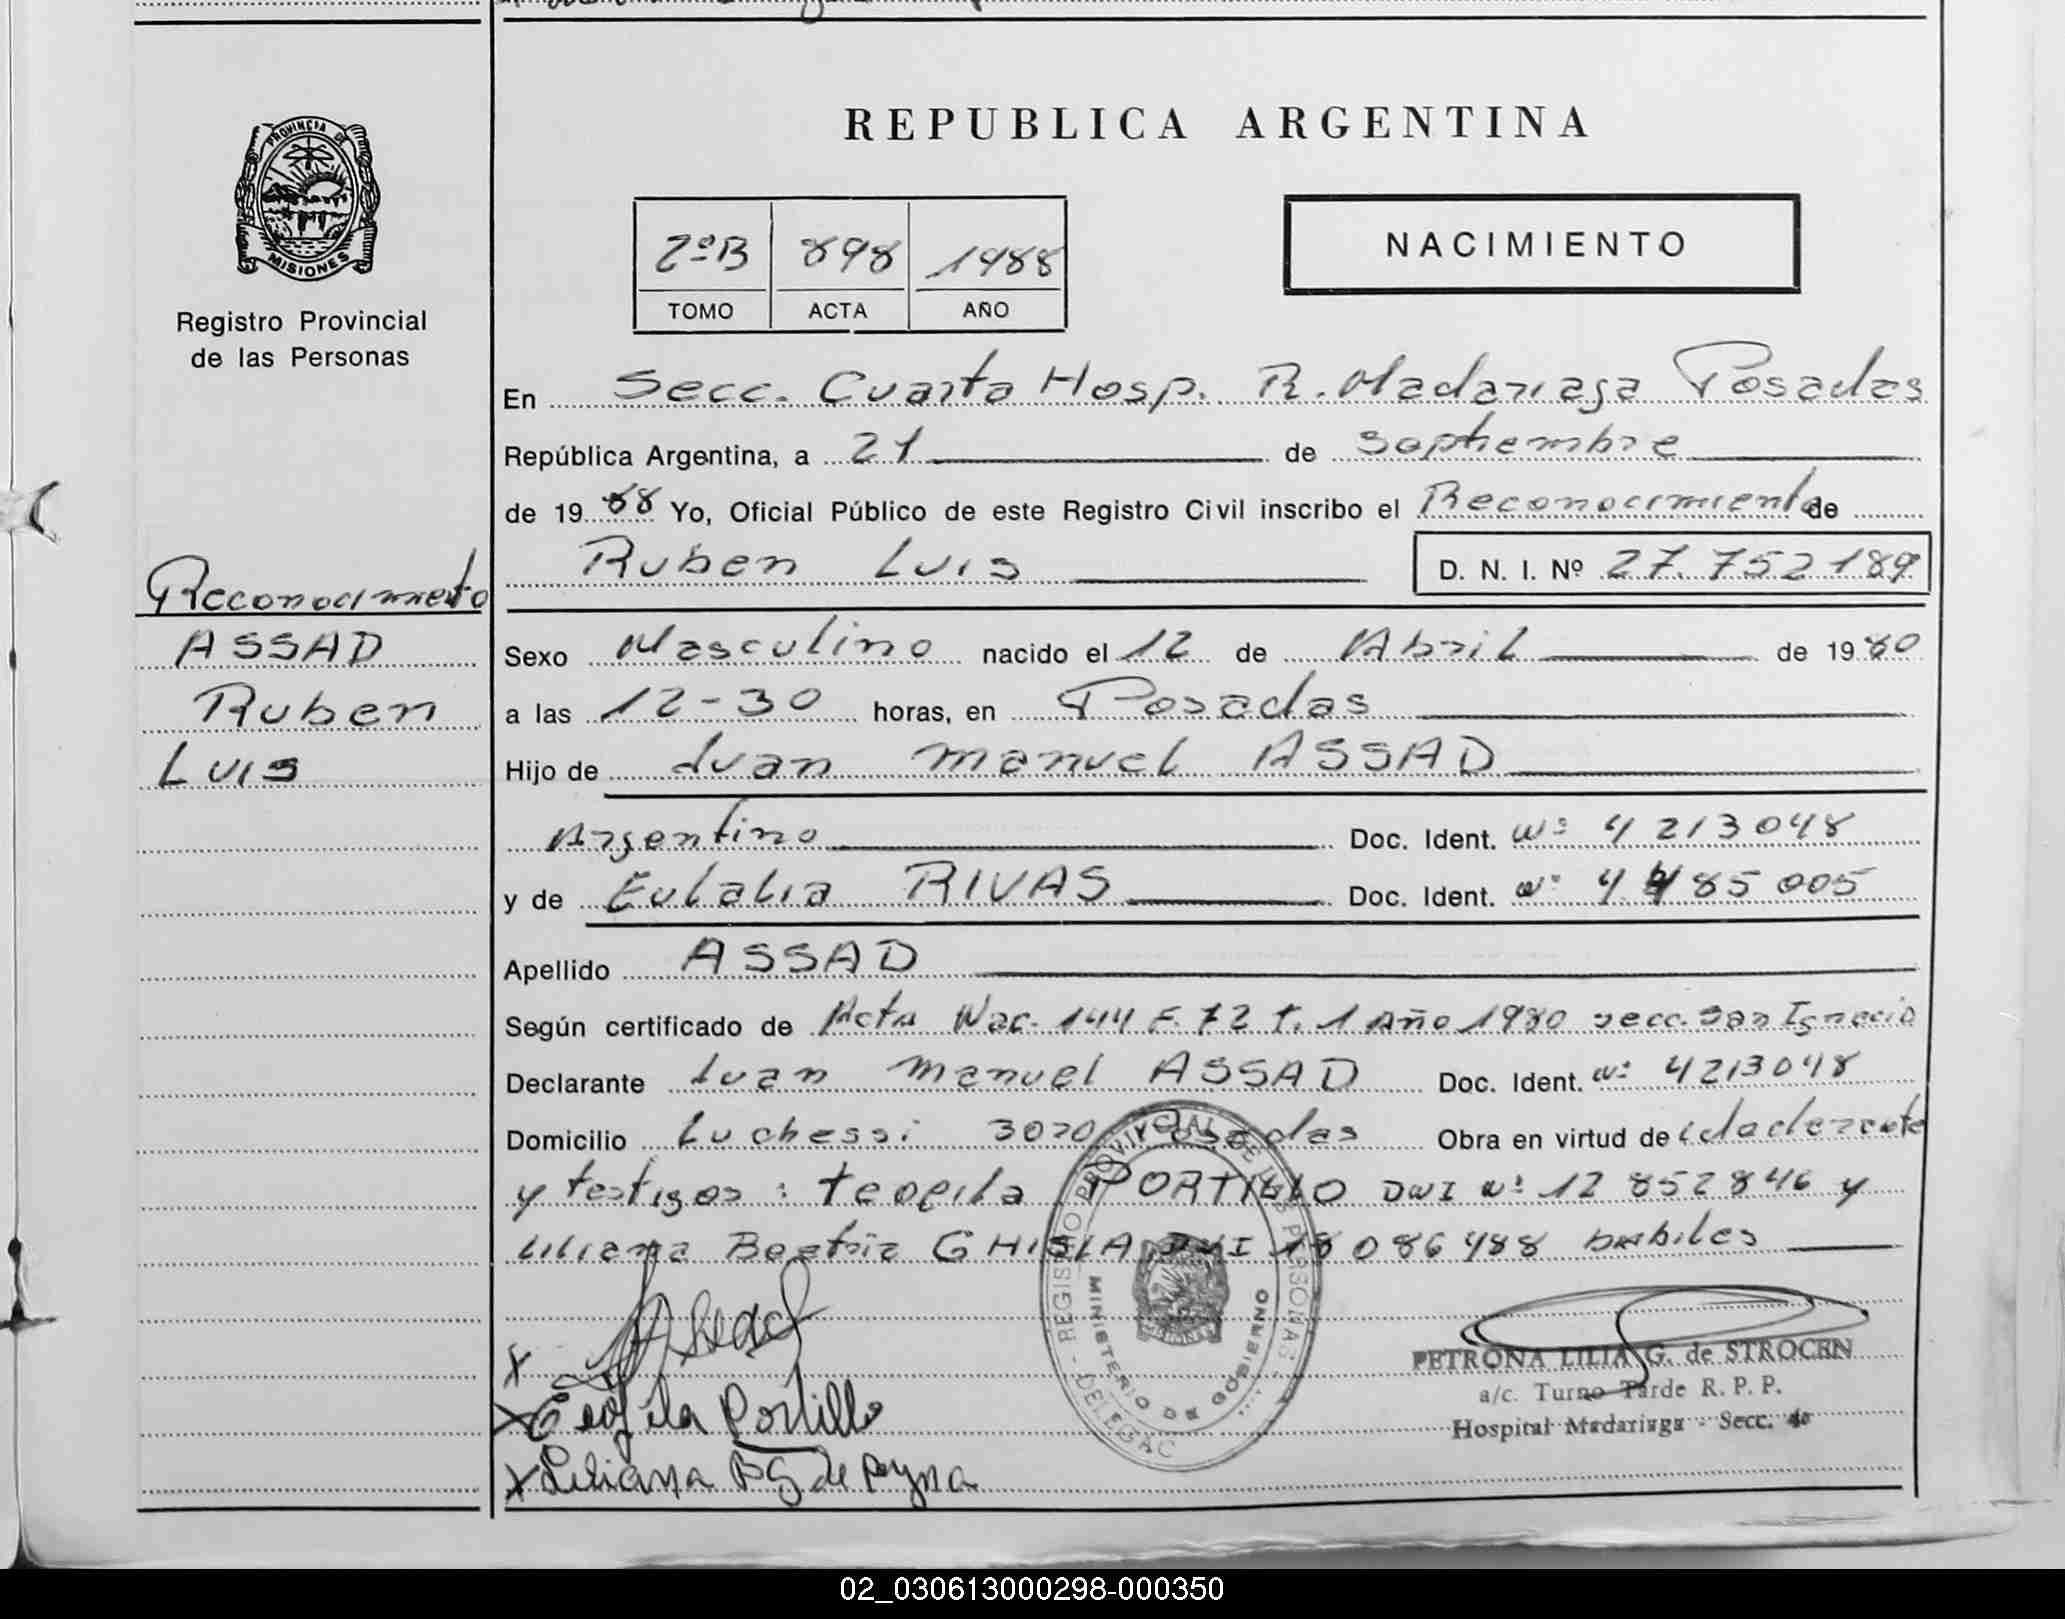 REPUBLICA ARGENTINA
PROVINCIA DE
MISIONES
Registro Provincial
de las Personas
2ºB 898 1988
TOMO ACTA AÑO
NACIMIENTO
En Secc. Cuarta Hosp. R. Madariaga Posadas
República Argentina, a 21 de septiembre
de 19 88 Yo, Oficial Público de este Registro Civil inscribo el Reconocimiento de
Ruben Luis D. N. I. Nº 27.752189
Reconocimiento
ASSAD
Ruben
Luis
Sexo Masculino nacido el 12 de Abril de 19 80
a las 12-30 horas, en Posadas
Hijo de Juan Manuel ASSAD
Argentino Doc. Ident. Nº 4213048
y de Eulalia RIVAS Doc. Ident. Nº 4.485005
Apellido ASSAD
Según certificado de Acta Nac. 144 F. 72 T. 1 Año 1980 secc. San Ignacio
Declarante Juan Manuel ASSAD Doc. Ident. Nº 4213048
Domicilio Luchessi 3020 Posadas Obra en virtud de
y testigos: Teofila PORTILLO DNI Nº 12852846 y
Liliana Beatriz GHISLA DNI 18086488 habiles
REGISTRO PROVINCIAL DE LAS PERSONAS
MINISTERIO DE GOBIERNO
Assad
X Teofila Portillo
X Liliana BG de Reyna
PETRONA LILIA G. de STROCEN
a/c. Turno Tarde R. P. P.
Hospital Madariaga - Secc. 4a
02_030613000298-000350